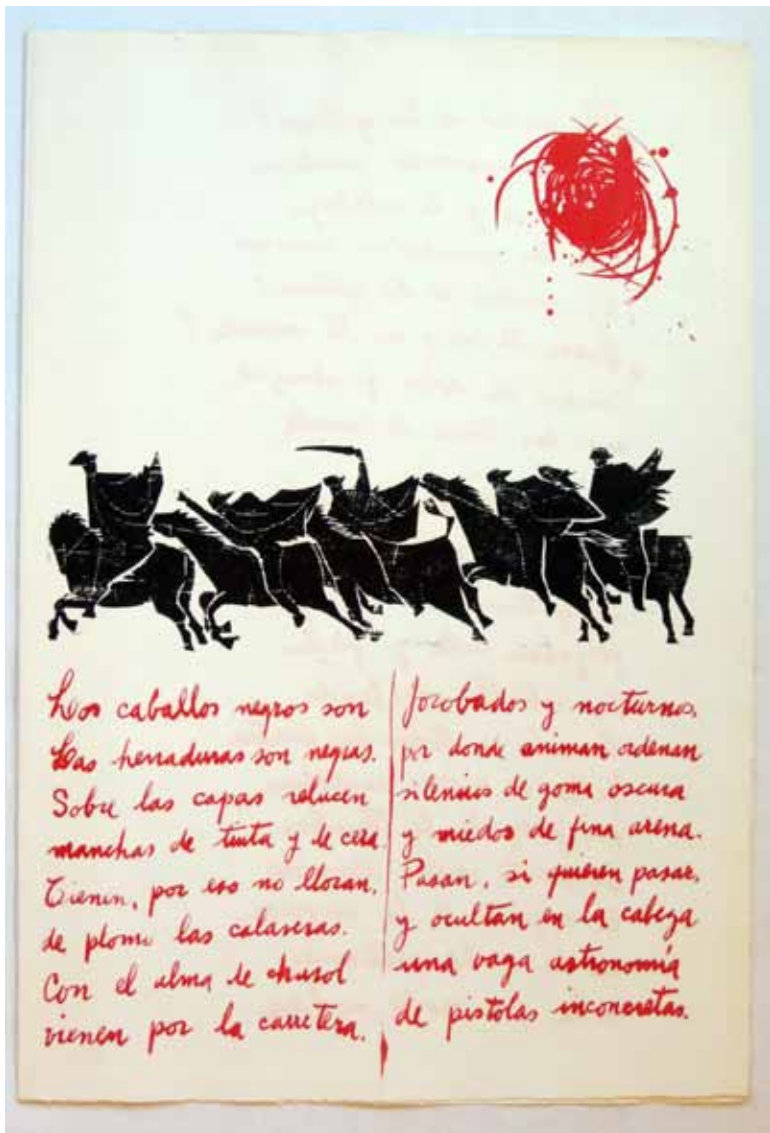 Los caballos negros son
Las herraduras son negras.
Sobre las capas relucen
manchas de tinta y de cera
Tienen, por eso no lloran,
de plomo las calaveras.
Con el alma de charol
vienen por la carretera.
Jorobados y nocturnos,
por donde animan ordenan
silencios de goma oscura
y miedos de fina arena.
Pasan, si quieren pasar,
y ocultan en la cabeza
una vaga astronomía
de pistolas inconcretas.